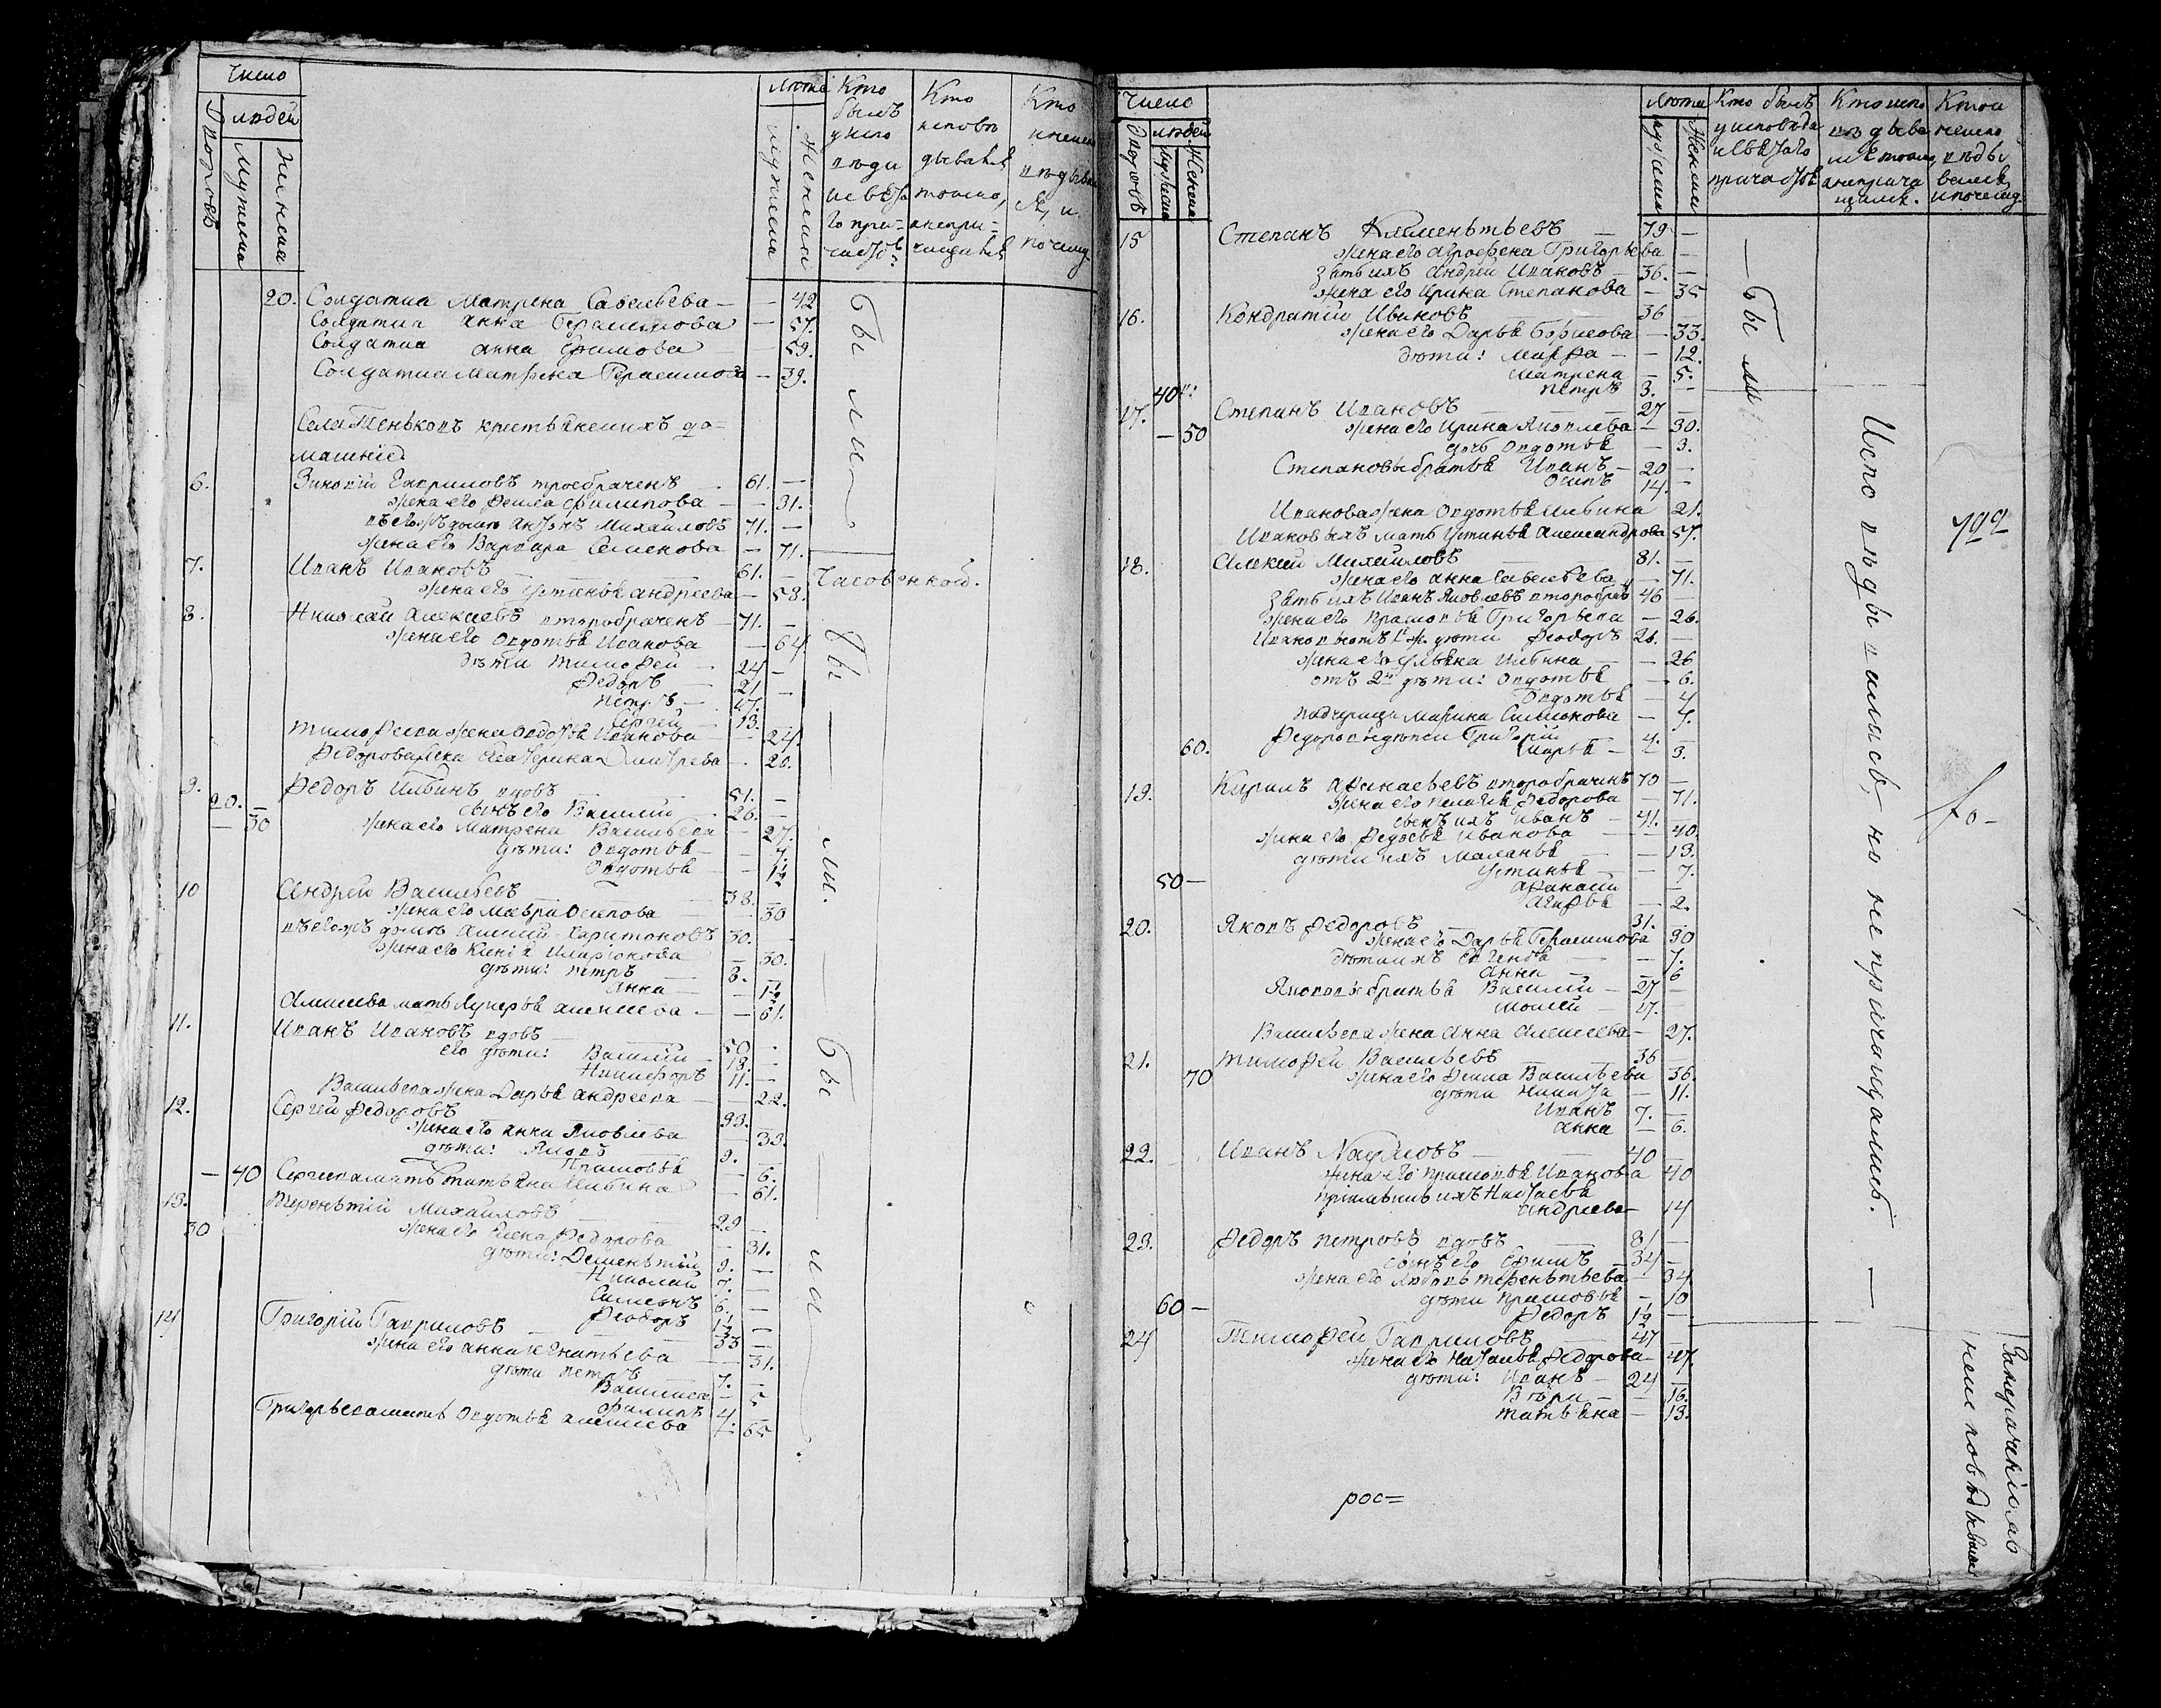 Число
людей
Дворовъ
Мужеска
Женска
Лѣта
мужеска
Женска
Кто былъ у исповѣди и святаго причастія
Кто исповѣдывался токмо, а не причащался
Кто и не исповѣдывался, и почему
20. Солдатка Матрена Савельева — — 42
Солдатка Анна Герасимова — 57.
Солдатка Анна Ефимова — 59.
Солдатка Матрена Герасимова — 39.
Села Тенькопъ крестьяне и ихъ до=
машніе
6. Зиновій Гавриловъ троебраченъ — 61. —
жена его Фекла Филипова — — 31.
въ его жъ домѣ Антонъ Михайловъ 71. —
жена его Варвара Семенова — 71.
7. Иванъ Ивановъ 61. —
жена его Устинья Андреева — 58.
8. Николай Алексеевъ второбраченъ — 71. —
жена его Овдотья Иванова — 64
дѣти Тимофей — 24 —
Федоръ 21 —
Петръ — 17.
Сергей — 13.
Тимофеева жена Овдотья Иванова — 24.
Федорова жена Екатерина Дмитрева — 20.
9. Федоръ Ильинъ вдовъ 51. —
20. — сынъ его Василий 26. —
— 30 жена его Матрена Васильева — 27
дѣти: Овдотья — — 4.
Овдотья — — 1½
10 Андрей Васильевъ 38. —
жена его Мавра Осипова — 30
въ его жъ домѣ Алексей Харитоновъ 30.
жена его Ксенія Иларіонова — 30.
дѣти: Петръ 8. —
Анна — — 1½
Алексеева мать Лукерья Алексеева — — 61.
11. Иванъ Ивановъ вдовъ 50 —
его дѣти: Василій — 18. —
Никифоръ 11. —
Васильева жена Дарья Андреева — — 22.
12. Сергей Федоровъ 33. —
жена его Анна Яковлева — 33.
дѣти: Яковъ — 9. —
Прасковья — 6.
— 40 Сергеева мать Татьяна Ильина — 61.
13. Терентій Михайловъ 29 —
30 — жена его Елена Федорова — 31.
дѣти: Дементий 9. —
Николай 7. —
Симеонъ 6. —
Феодоръ 1½ —
14 Григорій Гавриловъ — 33 —
жена его Анна Игнатьева — 31.
дѣти Петръ 7. —
Василиса — 5
Филипъ 4. —
Григорьева мать Овдотья Алексеева — 65
Были
Часовенной.
Бы — ли. — Бы — ли.
Число
людей
Дворовъ
Мужеска
Женска
Лѣта
мужеска
Женска
Кто былъ у исповѣди и святаго причастія
Кто исповѣдывался токмо, а не причащался.
Кто и не исповѣдывался, и почему
15 Степанъ Клементьевъ — 79 —
жена его Агрофена Григорьева —
зять ихъ Андрей Ивановъ — 36. —
жена его Ирина Степанова — 35
16. Кондратій Ивановъ 36 —
жена его Дарья Борисова — 33.
дѣти: Марфа — — 12.
Матрена — 5.
40 Петръ 3. —
17. Степанъ Ивановъ 27 —
— 50 жена его Ирина Яковлева — 30.
дочь Овдотья — 3.
Степановы братья Иванъ — 20 —
Осипъ 14. —
Иванова жена Овдотья Ильина 21.
Ивановыхъ мать Устинья Александрова 57.
18. Алексей Михайловъ 81. —
жена его Анна Савельева — 71.
зять ихъ Иванъ Яковлевъ второбраченъ 46 —
жена его Прасковья Григорьева — 26.
Ивановы отъ 1й ж. дѣти Феодоръ 26. —
жена его Ульяна Ильина — 26
отъ 2й дѣти: Овдотья — 6.
Овдотья — 4
падчерица Марина Симеонова — 7.
Федоровы дѣти Григорій 4. —
60. Марья — 3.
19. Кирилъ Афанасьевъ второбраченъ 70 —
жена его Пелагея Федорова — 71.
сынъ ихъ Иванъ — 41. —
жена его Федосья Иванова — 40.
дѣти ихъ Маланья — 13.
Устинья — 7.
50 — Афанасий —
Агафья — 2.
20. Яковъ Федоровъ 31. —
жена его Дарья Герасимова 30
дѣти ихъ Евгенія — 7.
Анна — 6
Яковлевы братья Василий — 27 —
Мосей — 17. —
Васильева жена Анна Алексеева — 27.
21. Тимофей Васильевъ 36 —
70 жена его Фекла Васильева 36.
дѣти Никита — 11.
Иванъ 7. —
Анна — 6.
22. Иванъ Наумовъ — 40 —
жена его Прасковья Иванова 40
Андреева — 14
23. Федоръ Петровъ вдовъ 81 —
сынъ его Ефимъ 34 —
жена его Любовь Терентьева — 34
дѣти Прасковья — 10
60 — Федоръ 1½ —
24 Тимофей Гавриловъ 47 —
жена его Наталья Федорова — 47.
дѣти: Иванъ — 24 —
Вѣра — — 16.
Татьяна — 13.
Были
Исповѣдывались, но не причащались. —
За нераченіемъ
не исповѣдывались
рос=